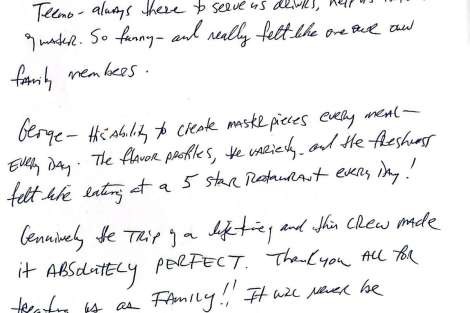 Teemo - always there to serve us drinks, help us
of water. So funny - and really felt like one our own
family members.
George - His Ability to create masterpieces every meal -
EVERY DAY. The flavor profiles, the variety - and the freshness
felt like eating at a 5 star Restaurant every day!
Genuinely the TRIP of a lifetime and this CREW MADE
it ABSOLUTELY PERFECT. Thank you ALL for
treating us as FAMILY!! It will never be